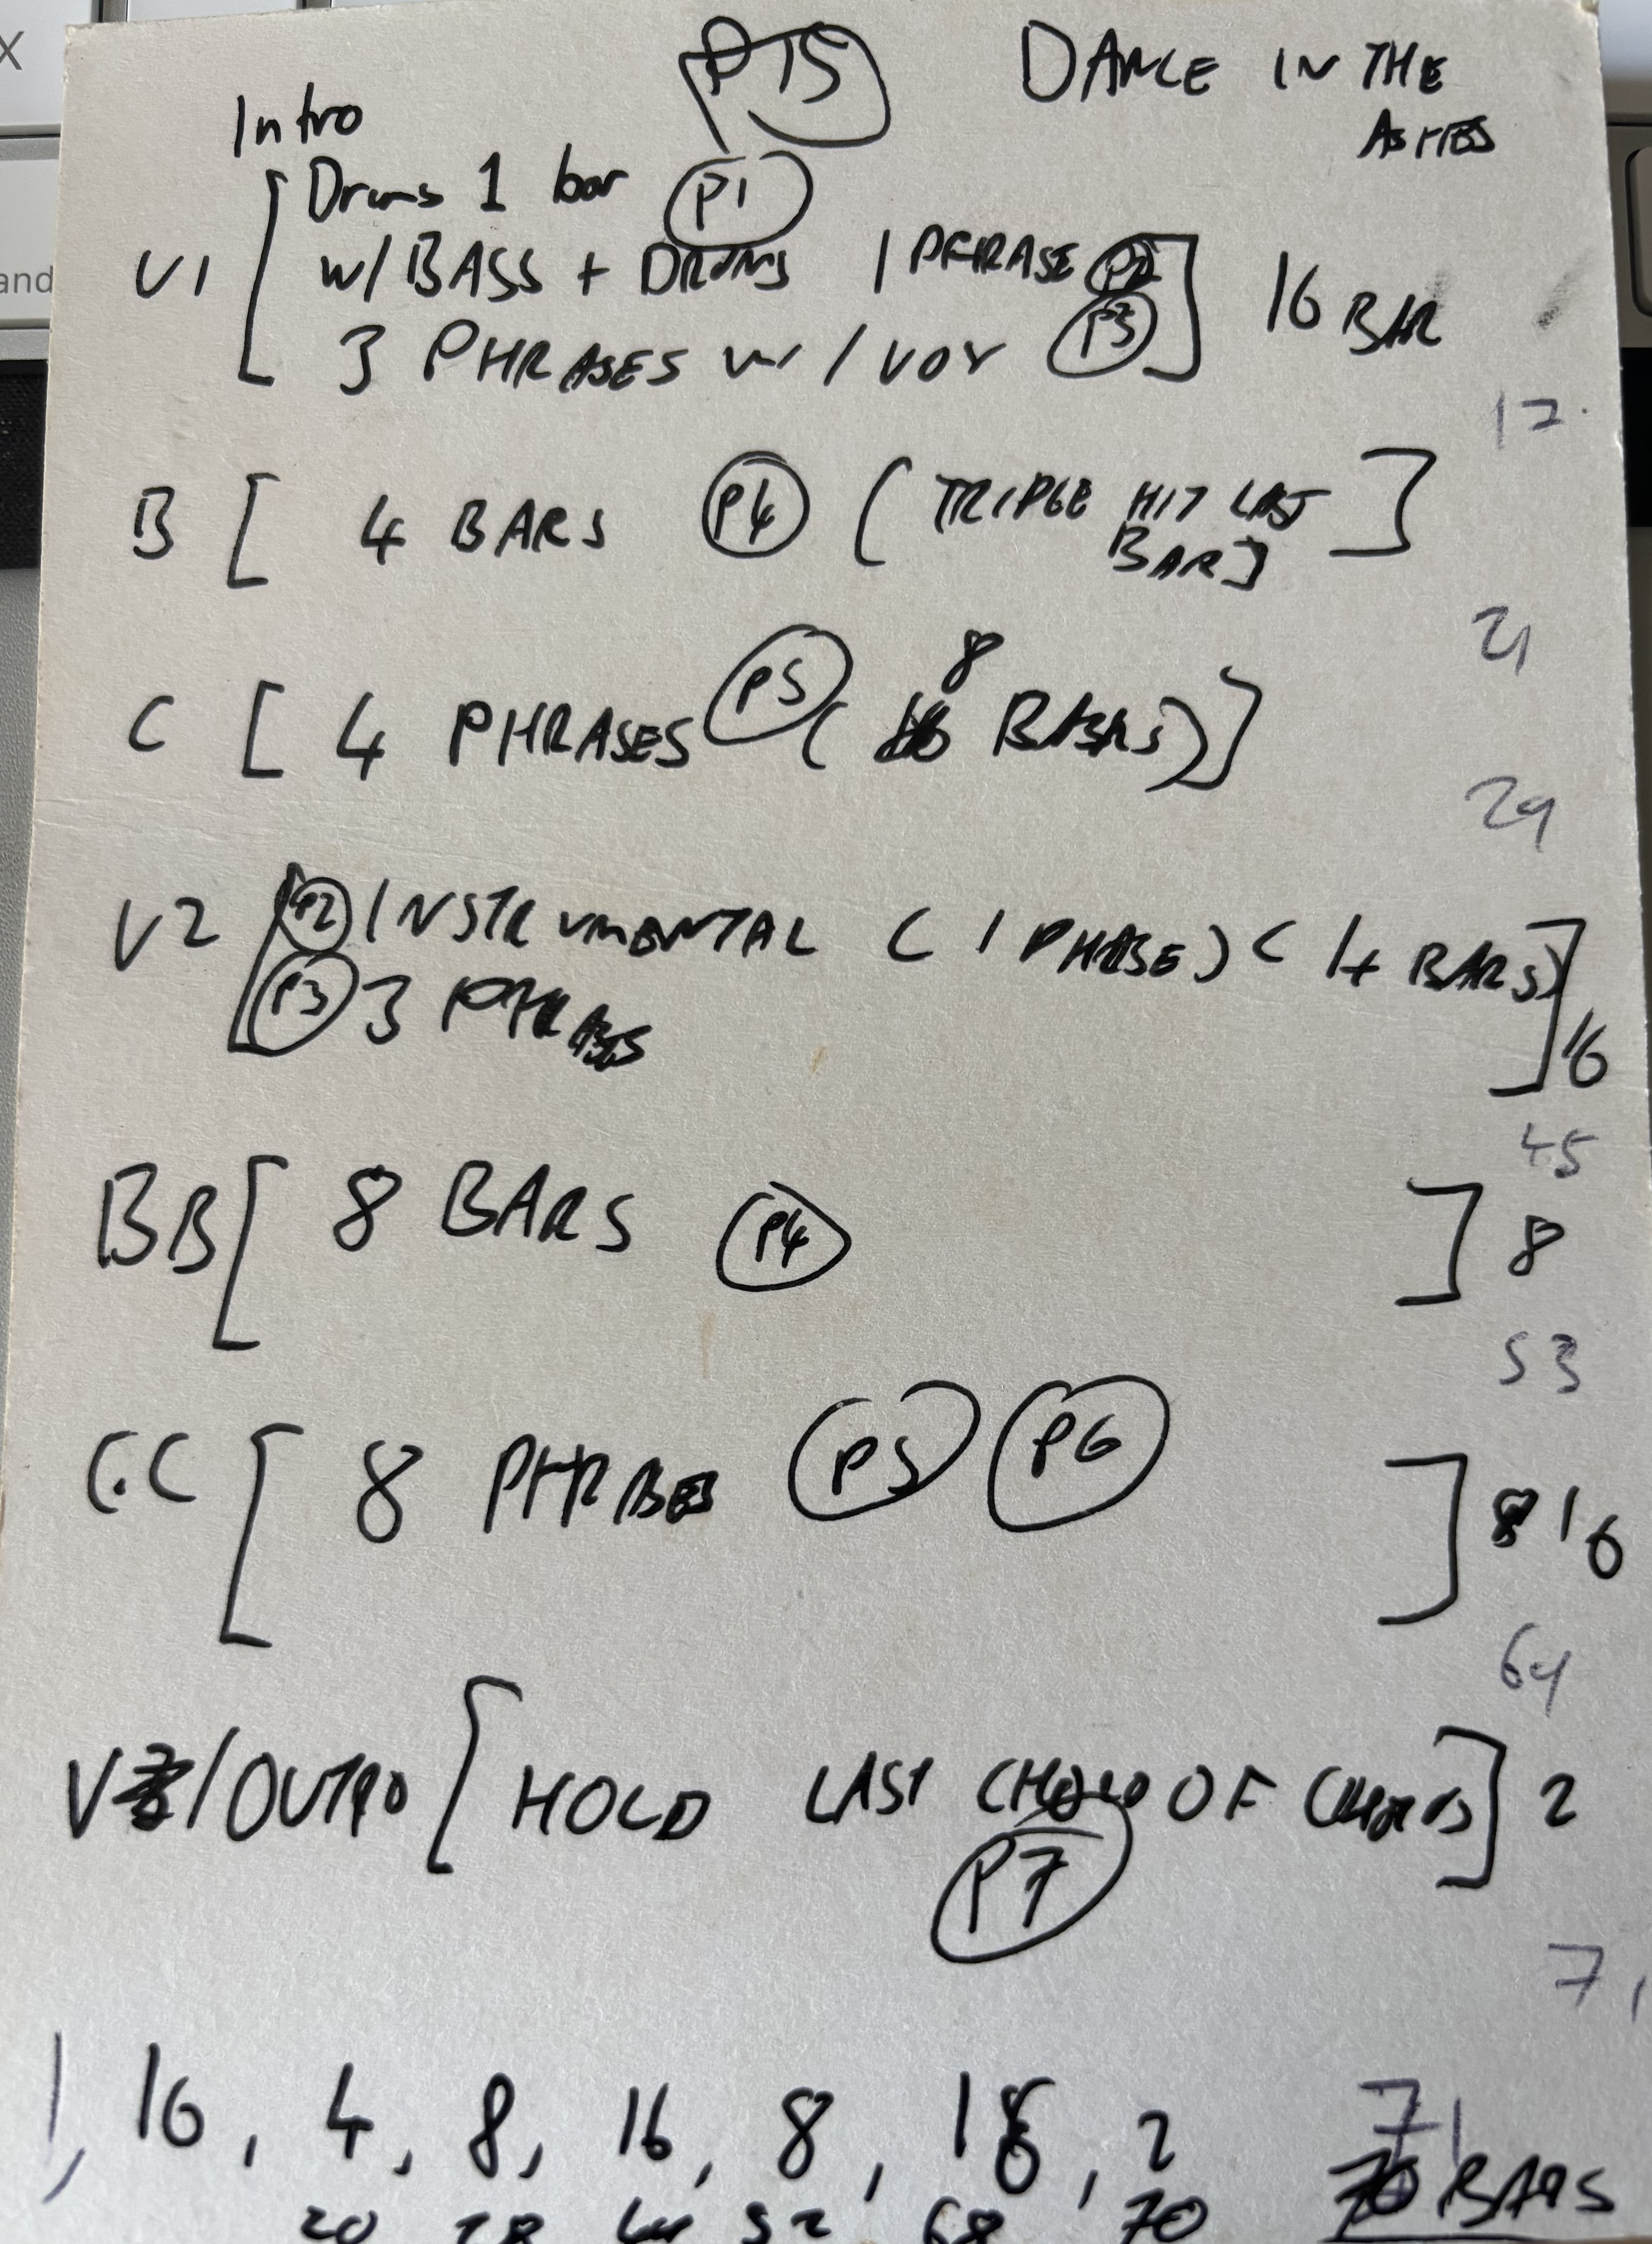 P15 DANCE IN THE
ASHES
Intro
Drums 1 bar P1
V1 [ W/ BASS + DRUMS 1 PHRASE P2 ] 16 BAR
3 PHRASES W/ VOX P3
17
B [ 4 BARS P4 ( TRIPLE HIT LAST ]
BAR ]
21
8
C [ 4 PHRASES P5 ( BARS ) ]
29
V2 [ P2 INSTRUMENTAL ( 1 PHASE ) ( 4 BARS ) ]
P3 3 PHRASES 16
45
BB [ 8 BARS P4 ] 8
53
CC [ 8 PHRASES P5 P6 ] 16
69
V /OUTRO [ HOLD LAST CHORD OF CHORUS ] 2
P7
71
1, 16, 4, 8, 16, 8, 16, 2 71
20 28 44 52 68 70 BARS